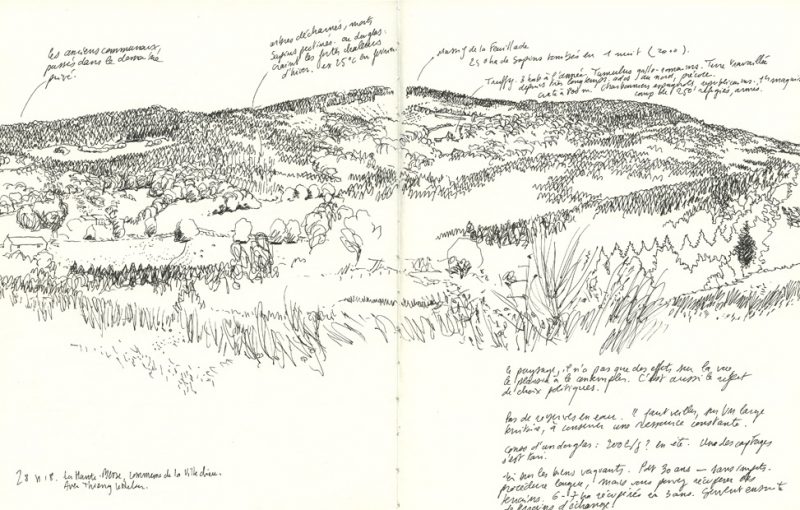 les anciens communaux,
passés dans le domaine
privé.
arbres décharnés, morts
Sapins pectinés. ou douglas.
craint les forts chaleurs
d'hiver. ex 25°C en février.
Massif de la Feuillade
250 ha de Sapins tombés en 1 nuit (2010).
3 hab à l'année. Tumulus gallo-romains. Terre travaillée
depuis très longtemps, ados au nord, précoce.
à 800 m. charbonniers espagnols républicains. 1er maquis
250 réfugiés, armés.
le paysage, il n'a pas que des effets sur la vue,
le plaisir à le contempler. C'est aussi le reflet
de choix politiques.
Pas de réserves en eau. Il faut veiller, sur un large
territoire, à conserver une ressource constante.
conso d'un douglas : 200L/j ? en été. Un des captages
s'est tari.
Loi sur les biens vacants. Post 30 ans — sans impôts.
procédure longue, mais vous pouvez récupérer des
terrains. 6-7 ha récupérés en 3 ans. Servent ensuite
de terrains d'échange !
28 VI 18. La Haute commune de la Villedieu.
Avec Thierry